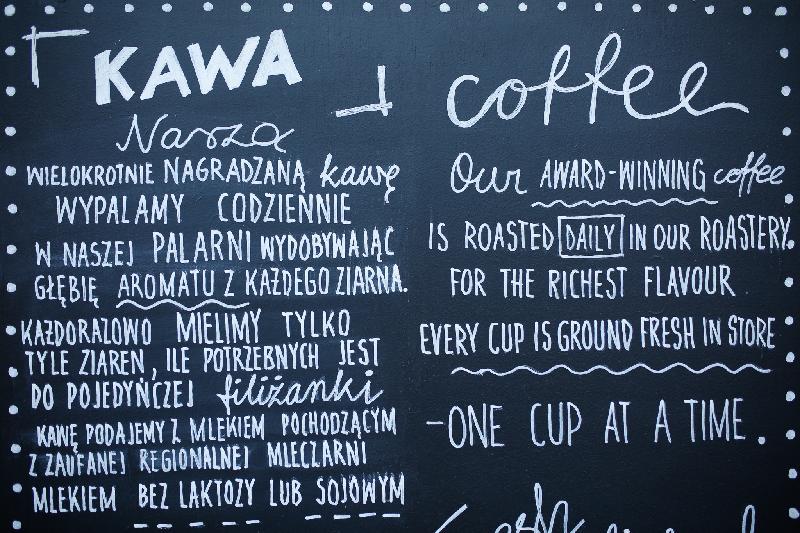 KAWA
Nasza
WIELOKROTNIE NAGRADZANĄ kawę
WYPALAMY CODZIENNIE
W NASZEJ PALARNI WYDOBYWAJĄC
GŁĘBIĘ AROMATU Z KAŻDEGO ZIARNA.
KAŻDORAZOWO MIELIMY TYLKO
TYLE ZIAREN, ILE POTRZEBNYCH JEST
DO POJEDYŃCZEJ filiżanki
KAWĘ PODAJEMY Z MLEKIEM POCHODZĄCYM
Z ZAUFANEJ REGIONALNEJ MLECZARNI
MLEKIEM BEZ LAKTOZY LUB SOJOWYM
coffee
Our AWARD-WINNING coffee
IS ROASTED DAILY IN OUR ROASTERY.
FOR THE RICHEST FLAVOUR
EVERY CUP IS GROUND FRESH IN STORE
-ONE CUP AT A TIME.